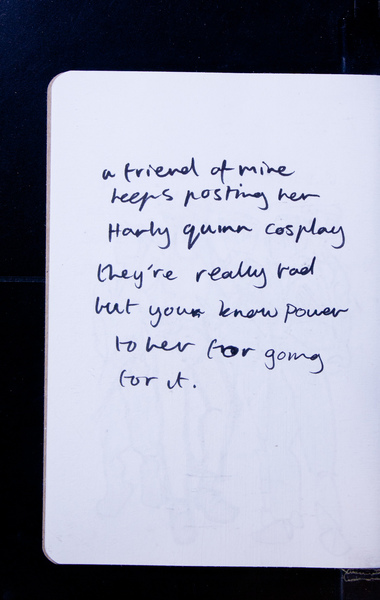 a friend of mine
keeps posting her
Harly quinn cosplay
they're really bad
but you know power
to her for going
for it.